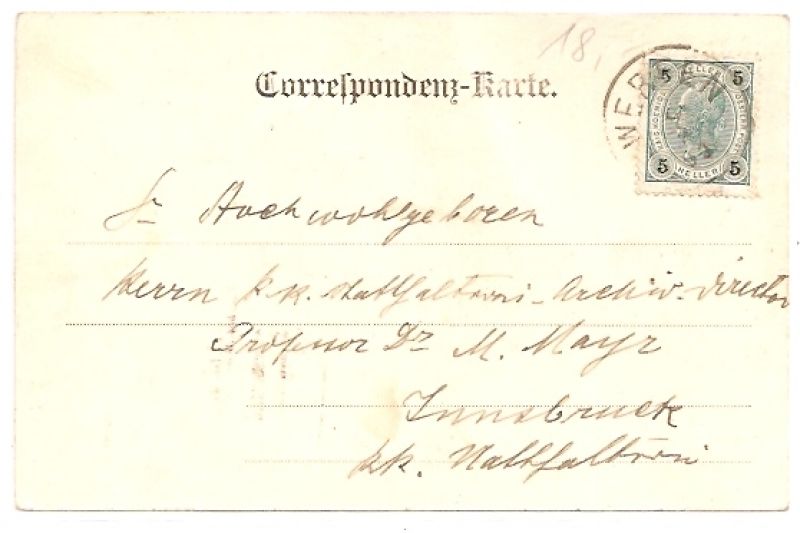 18,
Correspondenz-Karte.
WERFEN
5 HELLER 5
5 HELLER 5
Sr Hochwohlgeboren
Herrn k.k. Statthalterei-Archiv-Director
Professor Dr M. Mayr
Innsbruck
k.k. Statthalterei